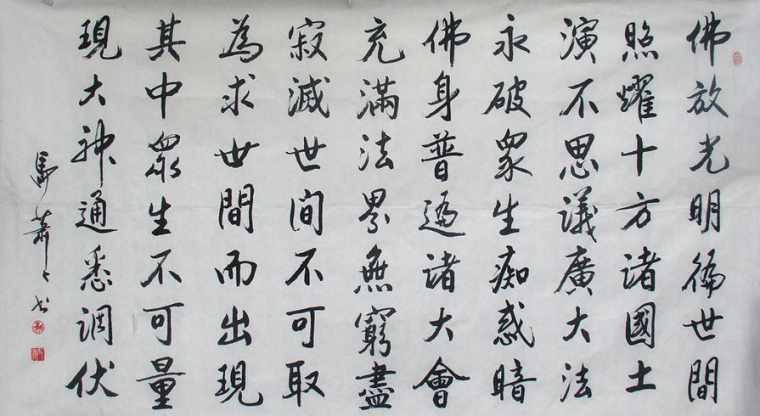 佛放光明徧世間
照耀十方諸國土
演不思議廣大法
永破眾生痴惑暗
佛身普遍諸大會
充滿法界無窮盡
寂滅世間不可取
為求世間而出現
其中眾生不可量
現大神通悉調伏
馬蕭〻书